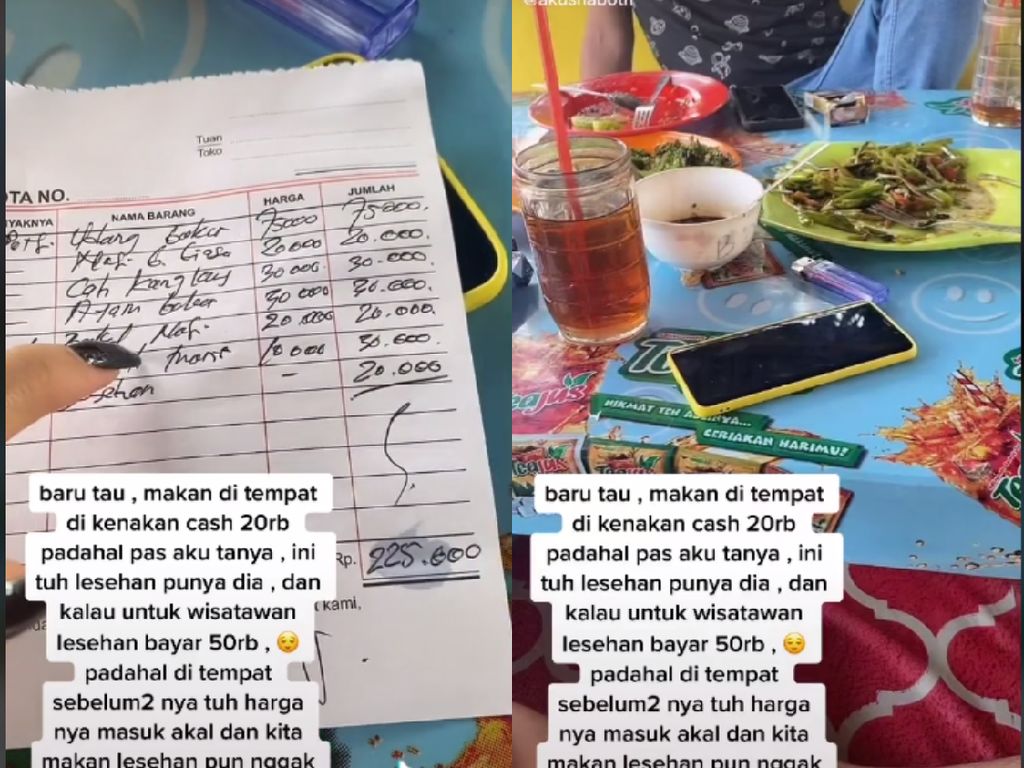 Tuan
Toko
TA NO.
YAKNYA NAMA BARANG HARGA JUMLAH
Udang bakar 75000 75.000.
20000 20.000.
Cah Kangkung 30000 30.000.
Ayam bakar
20.000
10000 30.000.
– 20.000
Rp. 225.000
kami,
baru tau , makan di tempat
di kenakan cash 20rb
padahal pas aku tanya , ini
tuh lesehan punya dia , dan
kalau untuk wisatawan
lesehan bayar 50rb , 😌
padahal di tempat
sebelum2 nya tuh harga
nya masuk akal dan kita
makan lesehan pun nggak
@akushaboth
B
NIKMAT TEH ASLINYA...
CERIAKAN HARIMU!
baru tau , makan di tempat
di kenakan cash 20rb
padahal pas aku tanya , ini
tuh lesehan punya dia , dan
kalau untuk wisatawan
lesehan bayar 50rb , 😌
padahal di tempat
sebelum2 nya tuh harga
nya masuk akal dan kita
makan lesehan pun nggak